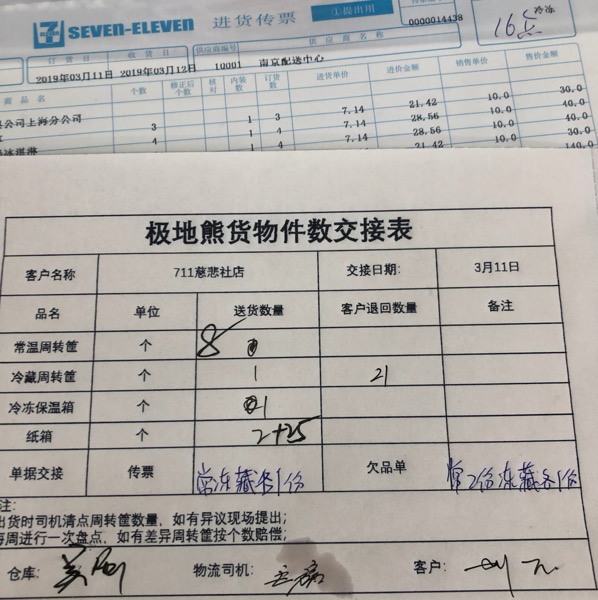 7 ELEVEN SEVEN-ELEVEN 进货传票 ①提出用 0000014438 冷冻
16点
订货日 收货日 供应商编号 供应商名称
2019年03月11日 2019年03月12日 10001 南京配送中心
商品名 个数 修正后个数 核对 内装数 订货数 进货单价 进价金额 销售单价 售价金额
公司上海分公司 3 1 3 7.14 21.42 10.0 30.0
4 1 4 7.14 28.56 10.0 40.0
冰淇淋 4 1 4 7.14 28.56 10.0 40.0
21.42 10.0 30.0
140.0
极地熊货物件数交接表
客户名称 711慈悲社店 交接日期: 3月11日
品名 单位 送货数量 客户退回数量 备注
常温周转筐 个 8
冷藏周转筐 个 1 21
冷冻保温箱 个 1
纸箱 个 2+25
单据交接 传票 常冻藏各1份 欠品单 常2份冻藏各1份
注:
出货时司机清点周转筐数量,如有异议现场提出;
每周进行一次盘点,如有差异周转筐按个数赔偿;
仓库: 物流司机: 客户: